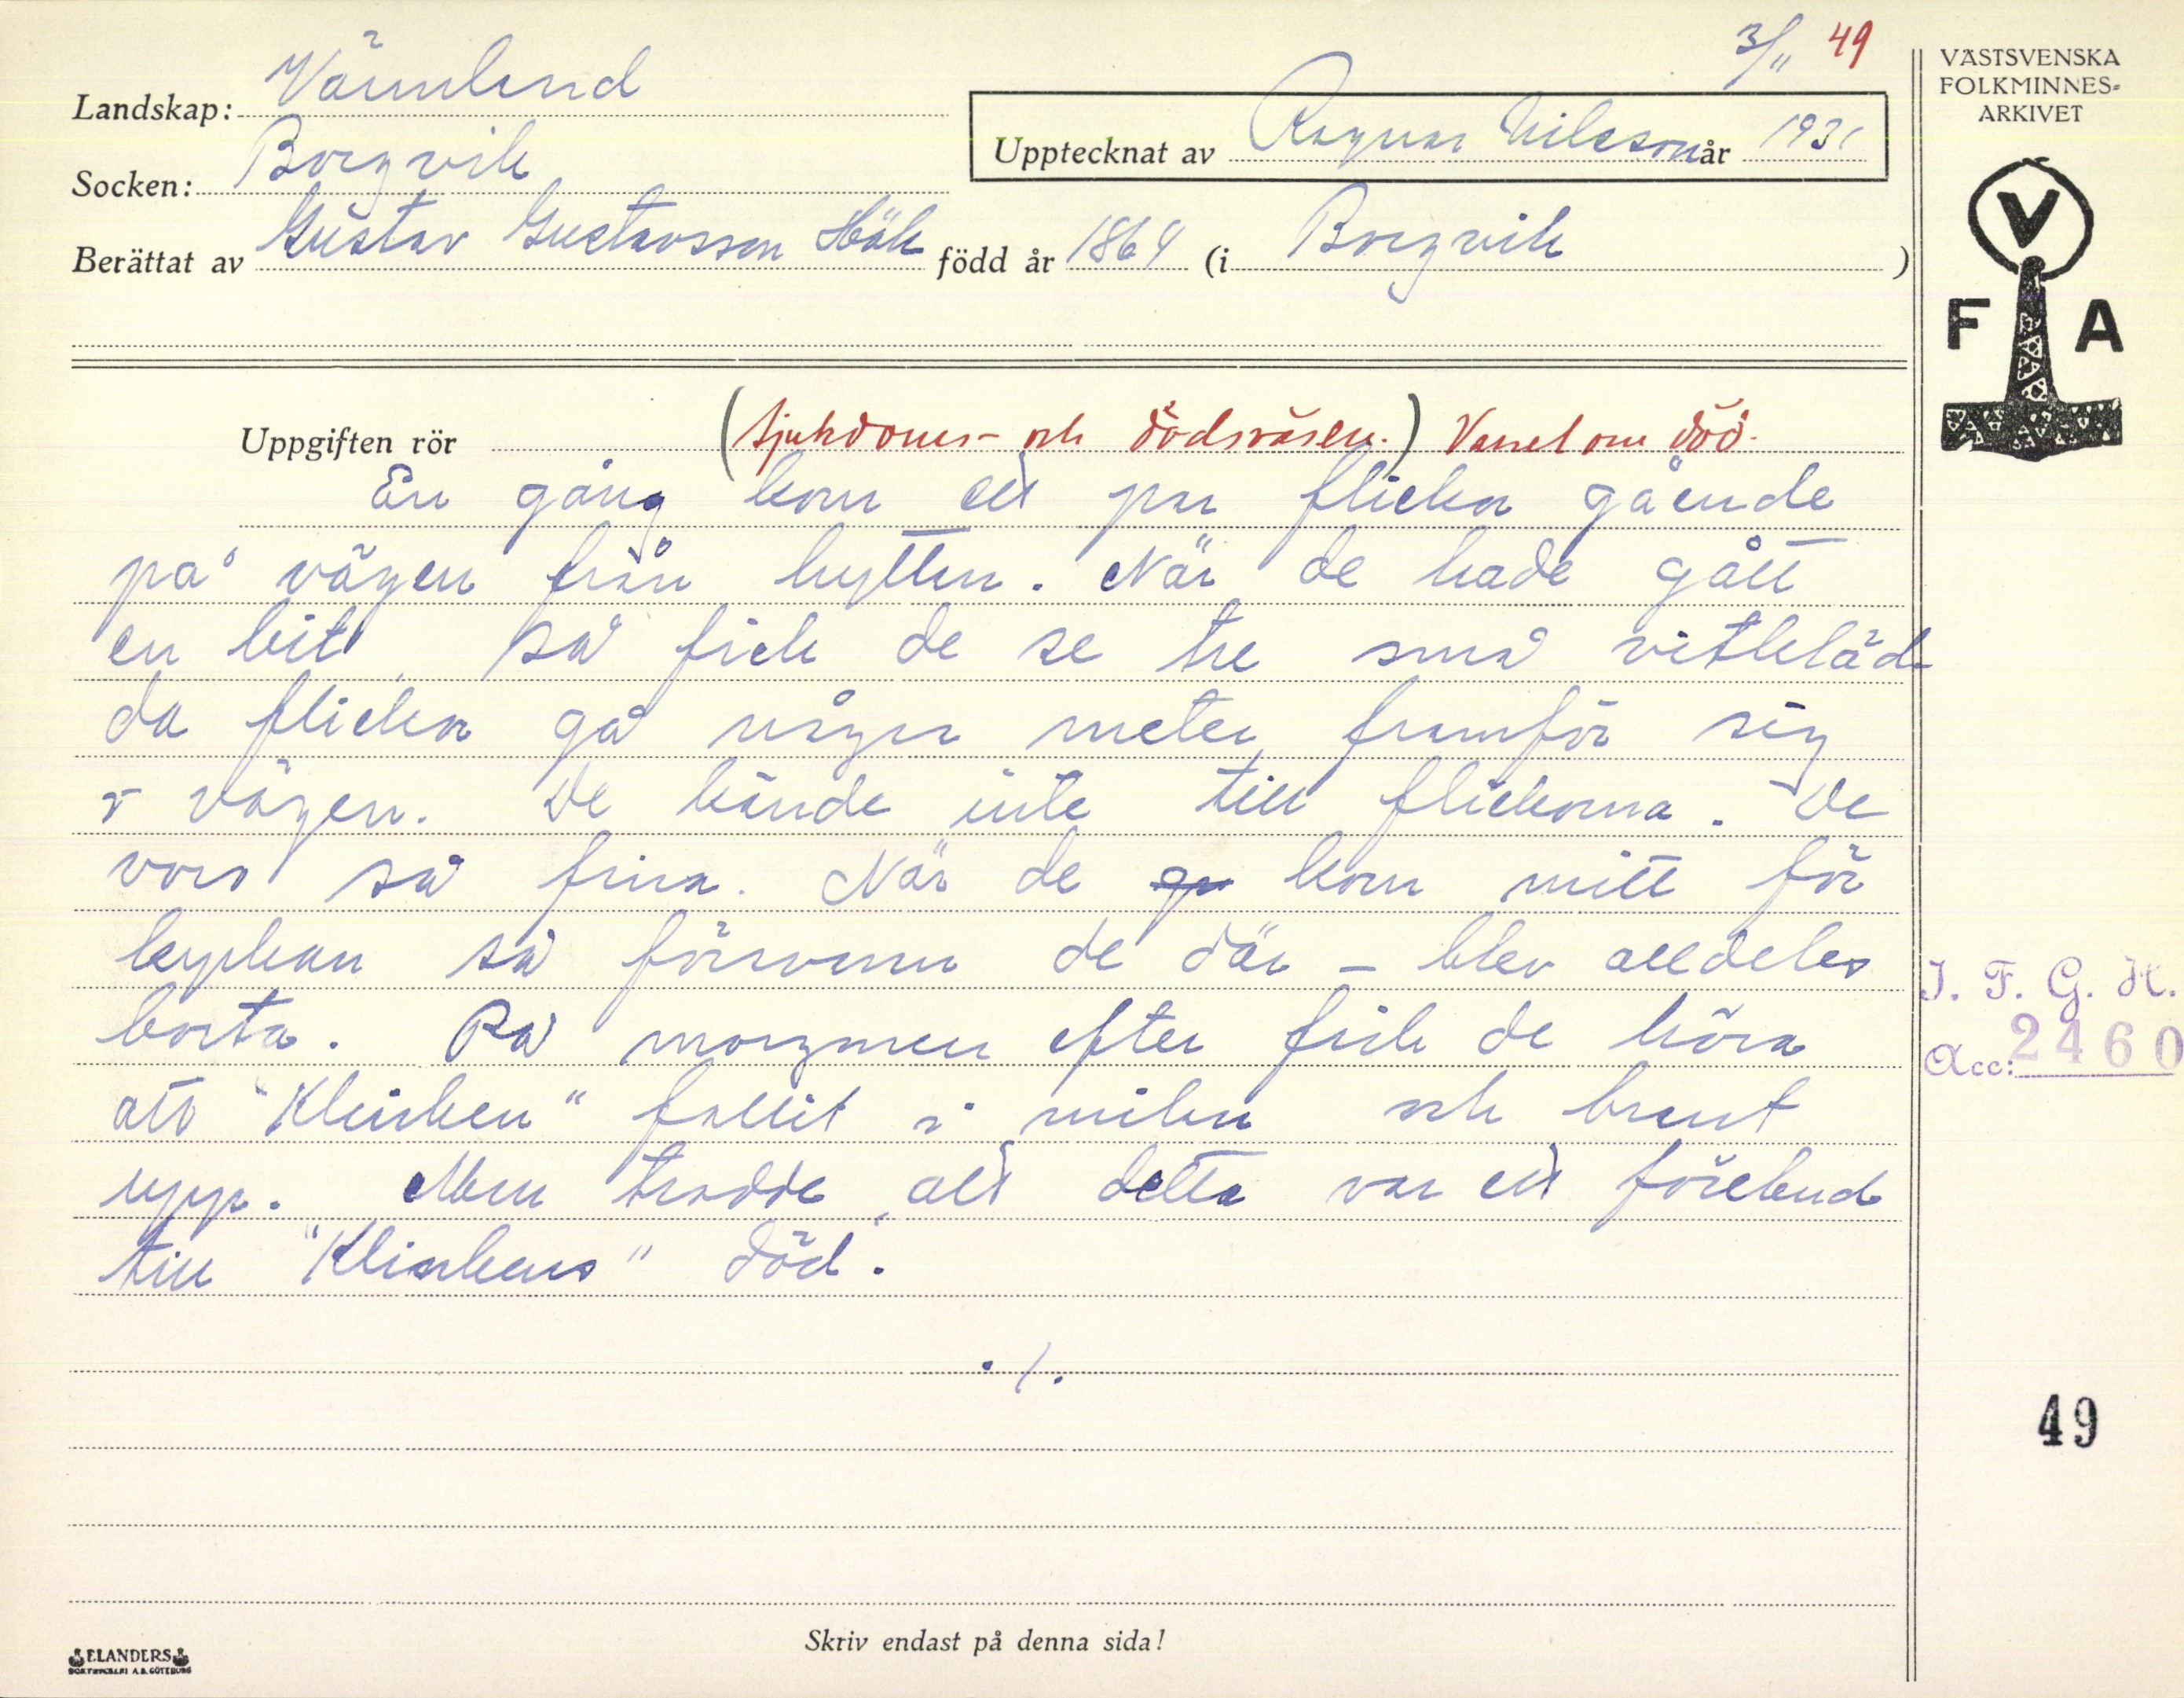 3/11 49
VÄSTSVENSKA
FOLKMINNES-
ARKIVET
Landskap: Värmland
Upptecknat av Ragnar Nilsson år 1931
Socken: Borgvik
Berättat av Gustav Gustavsson Hök född år 1864 (i Borgvik )
V
F A
Uppgiften rör (Sjukdoms- och dödsväsen.) Varsel om död.
En gång kom ett par flickor gående
på vägen från hyttan. När de hade gått
en bit, så fick de se tre små vitkläd-
da flickor gå några meter framför sig
i vägen. De kände inte till flickorna. De
voro så fina. När de kom mitt för
kyrkan så försvann de där – blev alldeles
borta. På morgonen efter fick de höra
att "Klinken" fallit i milan och brunt
upp. Man trodde att detta var ett förebud
till "Klinkens" död.
./.
I. F. G. H.
Acc: 2460
49
Skriv endast på denna sida!
ELANDERS
BOKTRYCKERI A.B. GÖTEBORG